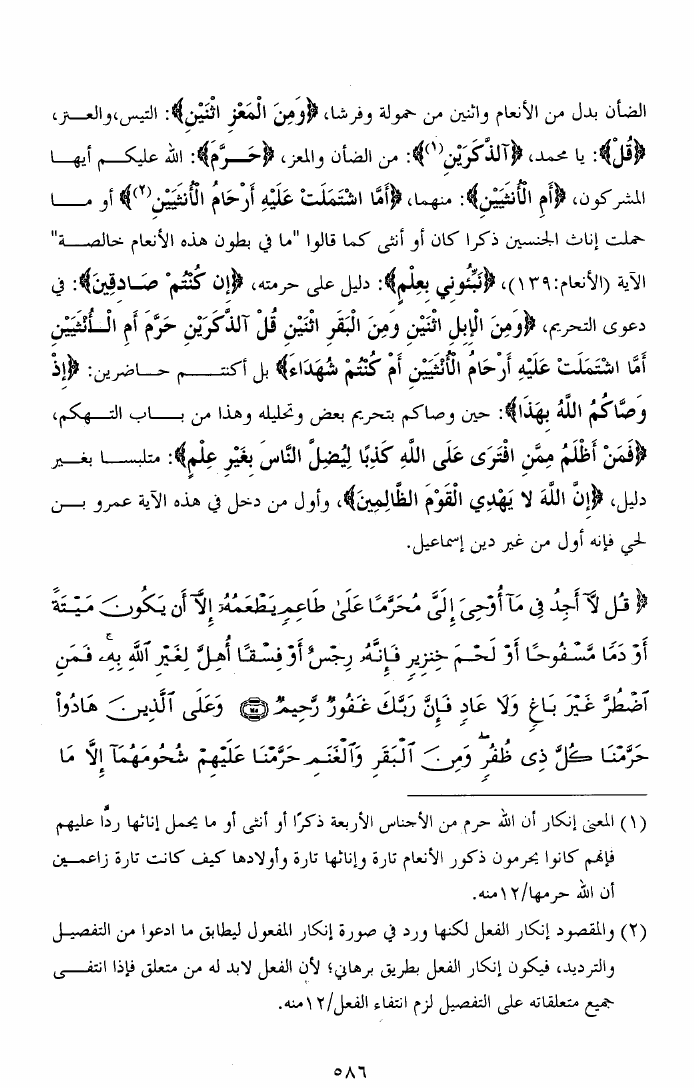 الضأن بدل من الأنعام واثنين من حمولة وفرشا، ﴿وَمِنَ الْمَعْزِ اثْنَيْنِ﴾: التيس،والعنز،
﴿قُلْ﴾: يا محمد، ﴿آلذَّكَرَيْنِ(١)﴾: من الضأن والمعز، ﴿حَرَّمَ﴾: الله عليكم أيها
المشركون، ﴿أَمِ الْأُنثَيَيْنِ﴾: منهما، ﴿أَمَّا اشْتَمَلَتْ عَلَيْهِ أَرْحَامُ الْأُنثَيَيْنِ(٢)﴾ أو ما
حملت إناث الجنسين ذكرا كان أو أنثى كما قالوا "ما في بطون هذه الأنعام خالصة"
الآية (الأنعام:١٣٩)، ﴿نَبِّئُونِي بِعِلْمٍ﴾: دليل على حرمته، ﴿إِن كُنْتُمْ صَادِقِينَ﴾: في
دعوى التحريم، ﴿وَمِنَ الْإِبِلِ اثْنَيْنِ وَمِنَ الْبَقَرِ اثْنَيْنِ قُلْ آلذَّكَرَيْنِ حَرَّمَ أَمِ الْأُنْثَيَيْنِ
أَمَّا اشْتَمَلَتْ عَلَيْهِ أَرْحَامُ الْأُنْثَيَيْنِ أَمْ كُنْتُمْ شُهَدَاءَ﴾ بل أكنتم حاضرين: ﴿إِذْ
وَصَّاكُمُ اللَّهُ بِهَذَا﴾: حين وصاكم بتحريم بعض وتحليله وهذا من باب التهكم،
﴿فَمَنْ أَظْلَمُ مِمَّنِ افْتَرَى عَلَى اللَّهِ كَذِبًا لِيُضِلَّ النَّاسَ بِغَيْرِ عِلْمٍ﴾: متلبسا بغير
دليل، ﴿إِنَّ اللَّهَ لا يَهْدِي الْقَوْمَ الظَّالِمِينَ﴾، وأول من دخل في هذه الآية عمرو بن
لحي فإنه أول من غير دين إسماعيل.
﴿قُل لَّآ أَجِدُ فِى مَآ أُوْحِىَ إِلَىَّ مُحَرَّمًا عَلَىٰ طَاعِمٍ يَطْعَمُهُۥٓ إِلَّآ أَن يَكُونَ مَيْتَةً
أَوْ دَمًا مَّسْفُوحًا أَوْ لَحْمَ خِنزِيرٍ فَإِنَّهُۥ رِجْسٌ أَوْ فِسْقًا أُهِلَّ لِغَيْرِ ٱللَّهِ بِهِۦ ۚ فَمَنِ
ٱضْطُرَّ غَيْرَ بَاغٍ وَلَا عَادٍ فَإِنَّ رَبَّكَ غَفُورٌ رَّحِيمٌ ﴿١٤٥﴾ وَعَلَى ٱلَّذِينَ هَادُوا۟
حَرَّمْنَا كُلَّ ذِى ظُفُرٍ ۖ وَمِنَ ٱلْبَقَرِ وَٱلْغَنَمِ حَرَّمْنَا عَلَيْهِمْ شُحُومَهُمَآ إِلَّا مَا
(١) المعنى إنكار أن الله حرم من الأجناس الأربعة ذكرًا أو أنثى أو ما يحمل إناثها ردًّا عليهم
فإنهم كانوا يحرمون ذكور الأنعام تارة وإناثها تارة وأولادها كيف كانت تارة زاعمين
أن الله حرمها/١٢منه.
(٢) والمقصود إنكار الفعل لكنها ورد في صورة إنكار المفعول ليطابق ما ادعوا من التفصيل
والترديد، فيكون إنكار الفعل بطريق برهاني؛ لأن الفعل لابد له من متعلق فإذا انتفى
جميع متعلقاته على التفصيل لزم انتفاء الفعل/١٢منه.
٥٨٦